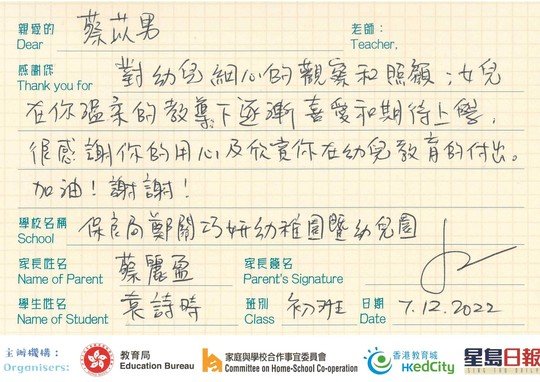 親愛的 蔡苡男 老師：
Dear Teacher,
感謝您 對幼兒細心的觀察和照顧；女兒
Thank you for
在你溫柔的教導下逐漸喜愛和期待上學，
很感謝你的用心及欣賞你在幼兒教育的付出。
加油！謝謝！
學校名稱 保良局鄭關巧妍幼稚園暨幼兒園
School
家長姓名 蔡麗盈 家長簽名
Name of Parent Parent's Signature
學生姓名 袁詩晴 班別 初班 日期 7.12.2022
Name of Student Class Date
主辦機構： 教育局 家庭與學校合作事宜委員會 香港教育城 星島日報
Organisers: Education Bureau Committee on Home-School Co-operation HKedCity SING TAO DAILY